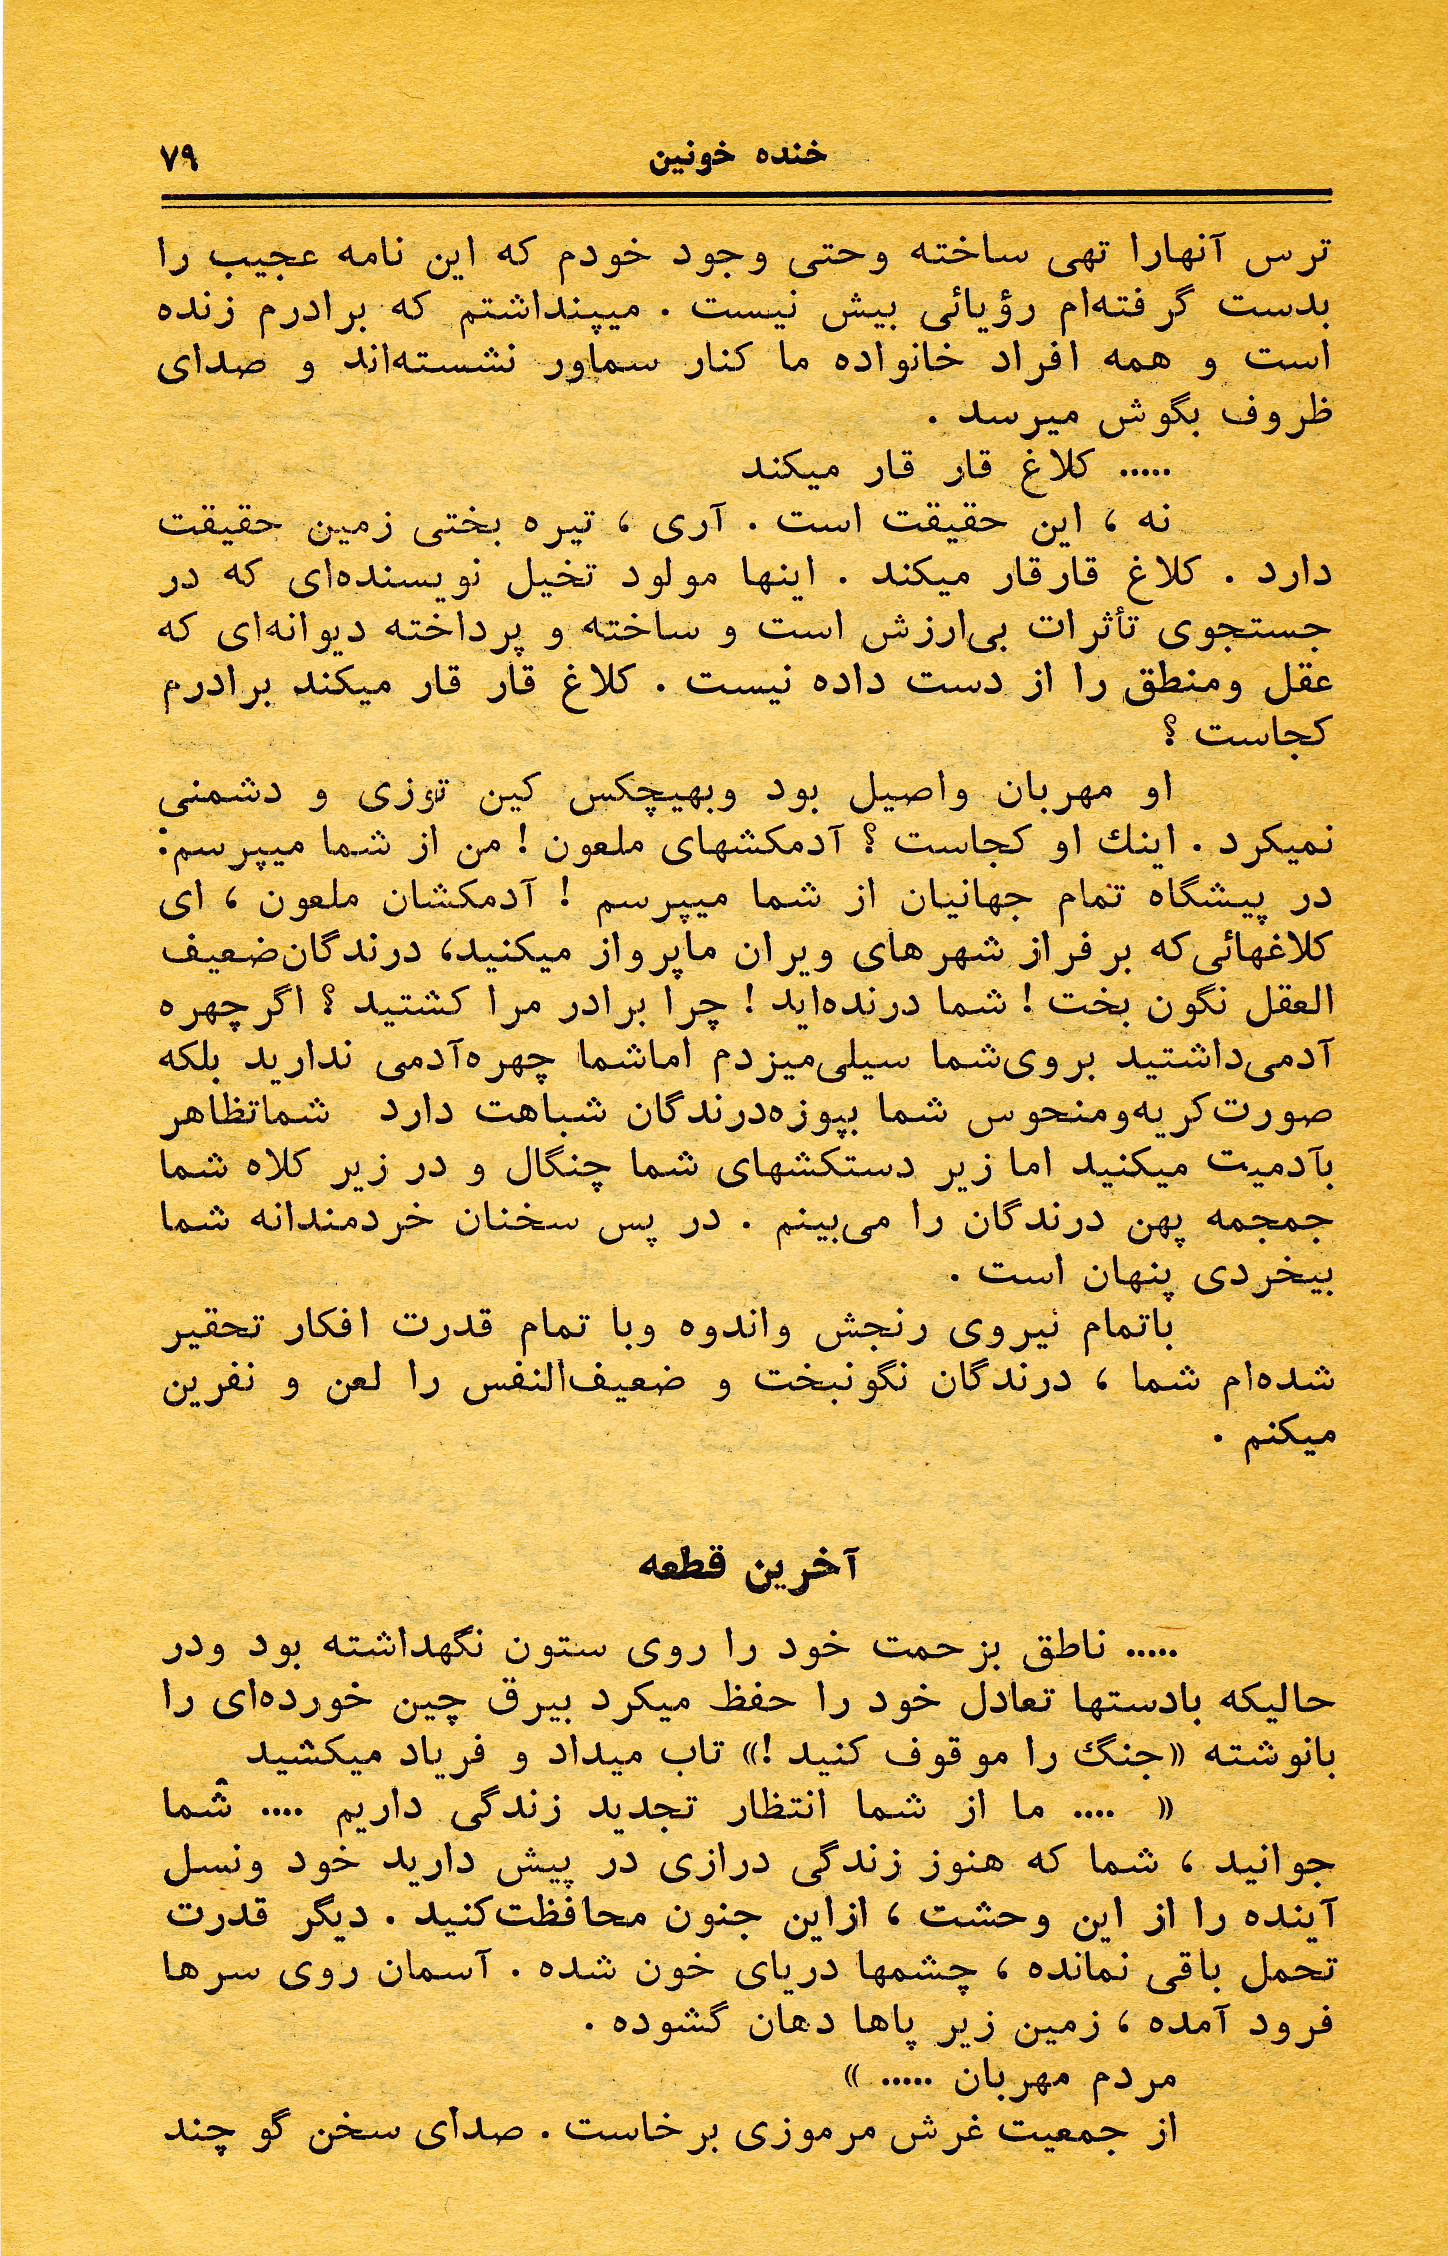 خنده خونین ۷۹
ترس آنهارا تهی ساخته وحتی وجود خودم که این نامه عجیب را
بدست گرفته‌ام رؤیائی بیش نیست . میپنداشتم که برادرم زنده
است و همه افراد خانواده ما کنار سماور نشسته‌اند و صدای
ظروف بگوش میرسد .
..... کلاغ قار قار میکند
نه ، این حقیقت است . آری ، تیره بختی زمین حقیقت
دارد . کلاغ قارقار میکند . اینها مولود تخیل نویسنده‌ای که در
جستجوی تأثرات بی‌ارزش است و ساخته و پرداخته دیوانه‌ای که
عقل ومنطق را از دست داده نیست . کلاغ قار قار میکند برادرم
کجاست ؟
او مهربان واصیل بود وبهیچکس کین توزی و دشمنی
نمیکرد . اینك او کجاست ؟ آدمکشهای ملعون ! من از شما میپرسم:
در پیشگاه تمام جهانیان از شما میپرسم ! آدمکشان ملعون ، ای
کلاغهائی‌که برفراز شهرهای ویران ماپرواز میکنید، درندگان‌ضعیف
العقل نگون بخت ! شما درنده‌اید ! چرا برادر مرا کشتید ؟ اگرچهره
آدمی‌داشتید بروی‌شما سیلی‌میزدم اماشما چهره‌آدمی ندارید بلکه
صورت‌کریه‌ومنحوس شما بپوزه‌درندگان شباهت دارد شماتظاهر
بآدمیت میکنید اما زیر دستکشهای شما چنگال و در زیر کلاه شما
جمجمه پهن درندگان را می‌بینم . در پس سخنان خردمندانه شما
بیخردی پنهان است .
باتمام نیروی رنجش واندوه وبا تمام قدرت افکار تحقیر
شده‌ام شما ، درندگان نگونبخت و ضعیف‌النفس را لعن و نفرین
میکنم .
آخرین قطعه
..... ناطق بزحمت خود را روی ستون نگهداشته بود ودر
حالیکه بادستها تعادل خود را حفظ میکرد بیرق چین خورده‌ای را
بانوشته «جنگ را موقوف کنید !» تاب میداد و فریاد میکشید
« .... ما از شما انتظار تجدید زندگی داریم .... شما
جوانید ، شما که هنوز زندگی درازی در پیش دارید خود ونسل
آینده را از این وحشت ، ازاین جنون محافظت‌کنید . دیگر قدرت
تحمل باقی نمانده ، چشمها دریای خون شده . آسمان روی سرها
فرود آمده ، زمین زیر پاها دهان گشوده .
مردم مهربان ..... »
از جمعیت غرش مرموزی برخاست . صدای سخن گو چند